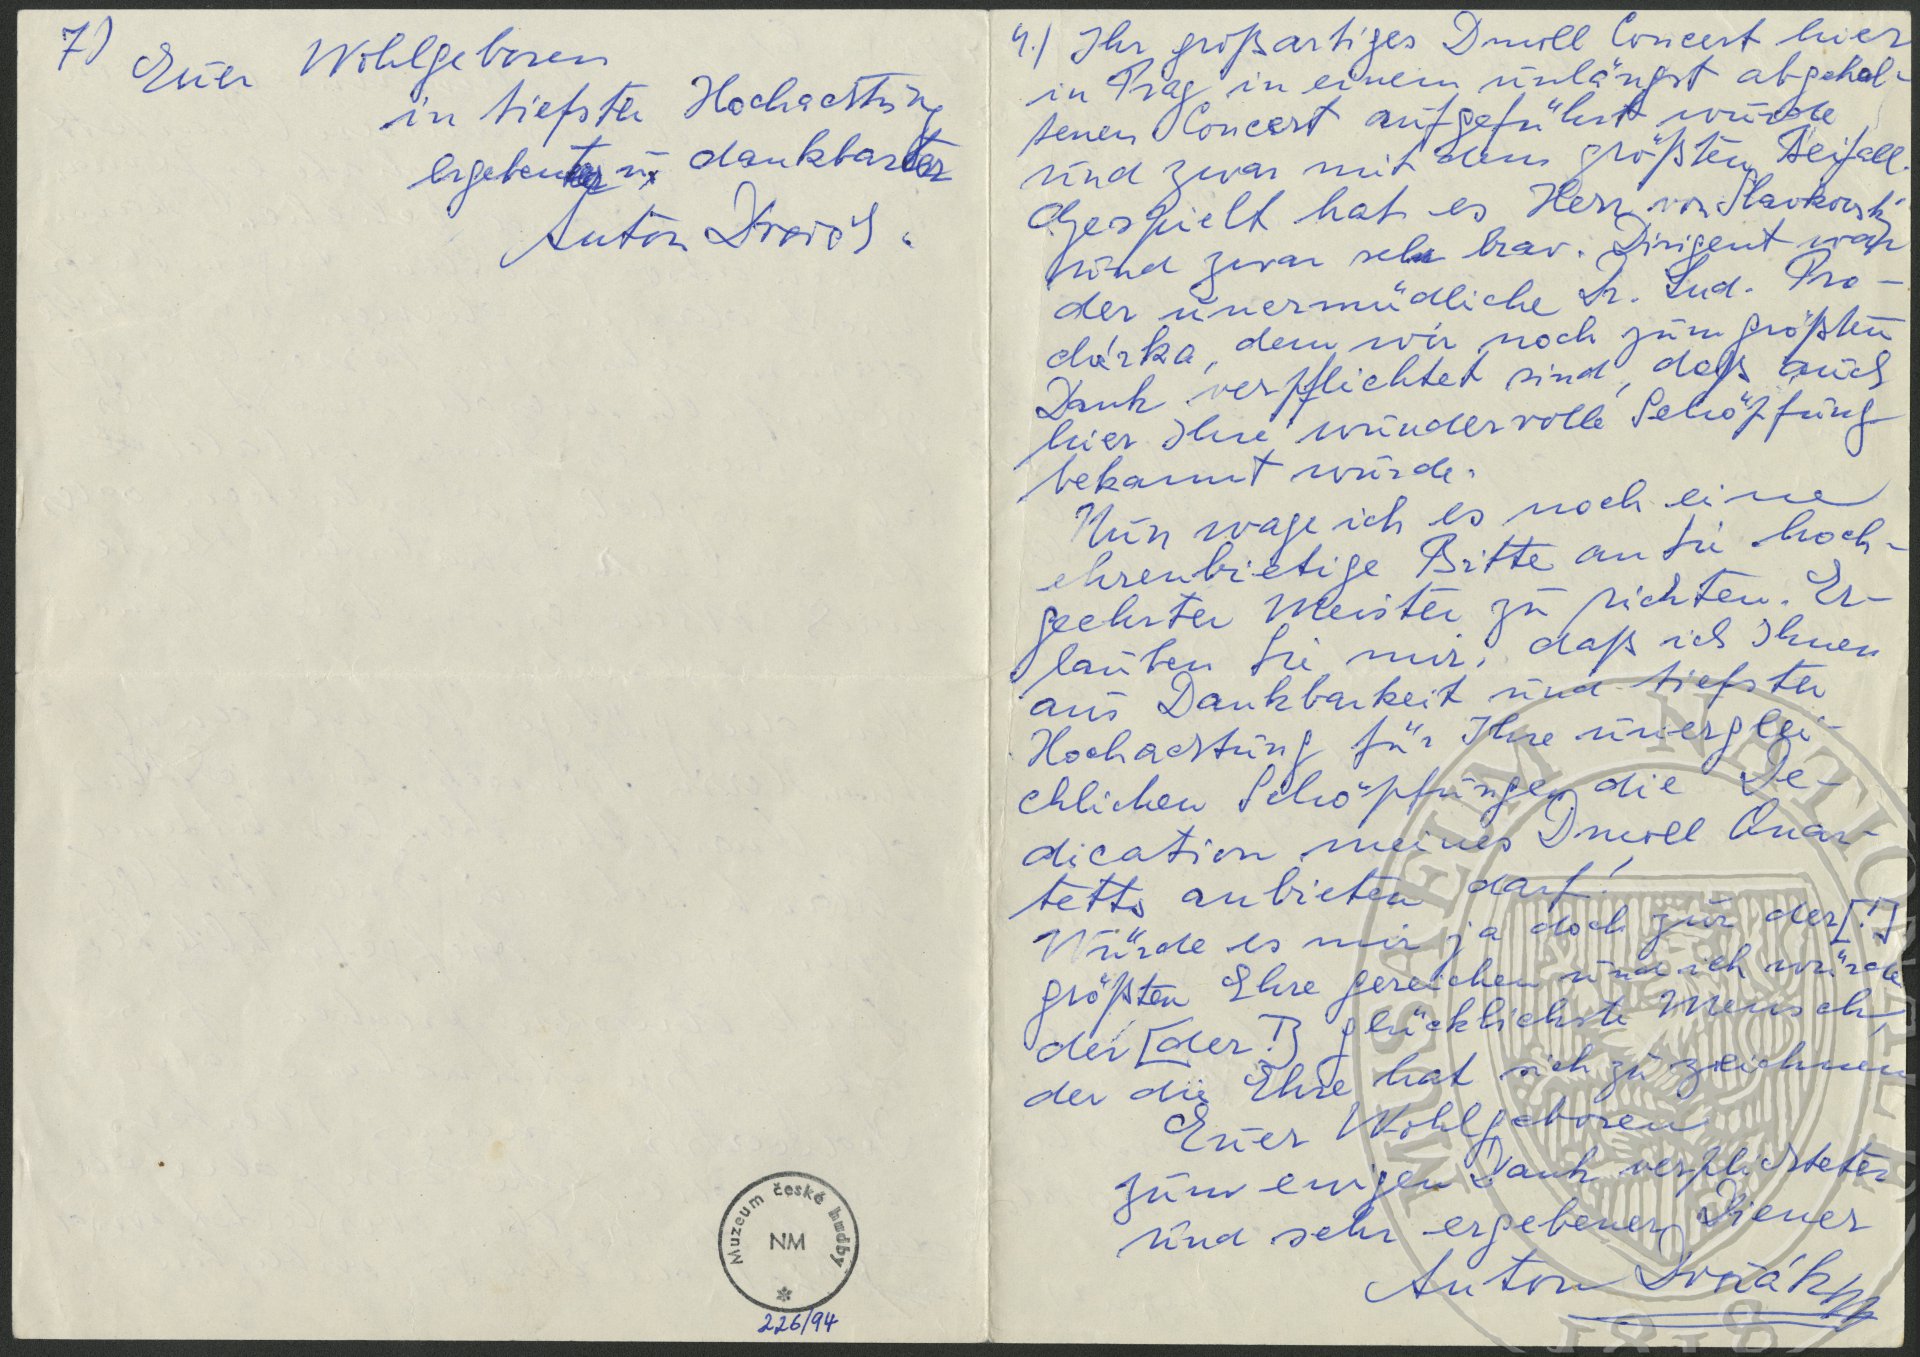 7)
Euer Wohlgeboren
in tiefster Hochachtung
ergebenster u. dankbarster
Anton Dvořák.
Muzeum české hudby
NM
226/94
4.) Ihr großartiges Dmoll Concert hier
in Prag in einem unlängst abgehal-
tenen Concert aufgeführt wurde
und zwar mit dem größten Beifall.
Gespielt hat es Herr von Slavkovský
und zwar sehr brav. Dirigent war
der unermüdliche Dr. Lud. Pro-
cházka, dem wir noch zum größten
Dank verpflichtet sind, daß auch
hier Ihre wundervolle Schöpfung
bekannt wurde.
Nun wage ich es noch eine
ehrenbietige Bitte an Sie hoch-
geehrter Meister zu richten. Er-
lauben Sie mir, daß ich Ihnen
aus Dankbarkeit und tiefster
Hochachtung für Ihre unverglei-
chlichen Schöpfungen die De-
dication meines Dmoll Quar-
tetts anbieten darf!
Würde es mir ja doch zur der [!]
größten Ehre gereichen und ich würde
der [der !] glücklichste Mensch,
der die Ehre hat sich zu zeichnen
Euer Wohlgeboren
zum ewigen Dank verpflichteter
und sehr ergebener Diener
Anton Dvořák
MUSAEUM NATIONALE
1818